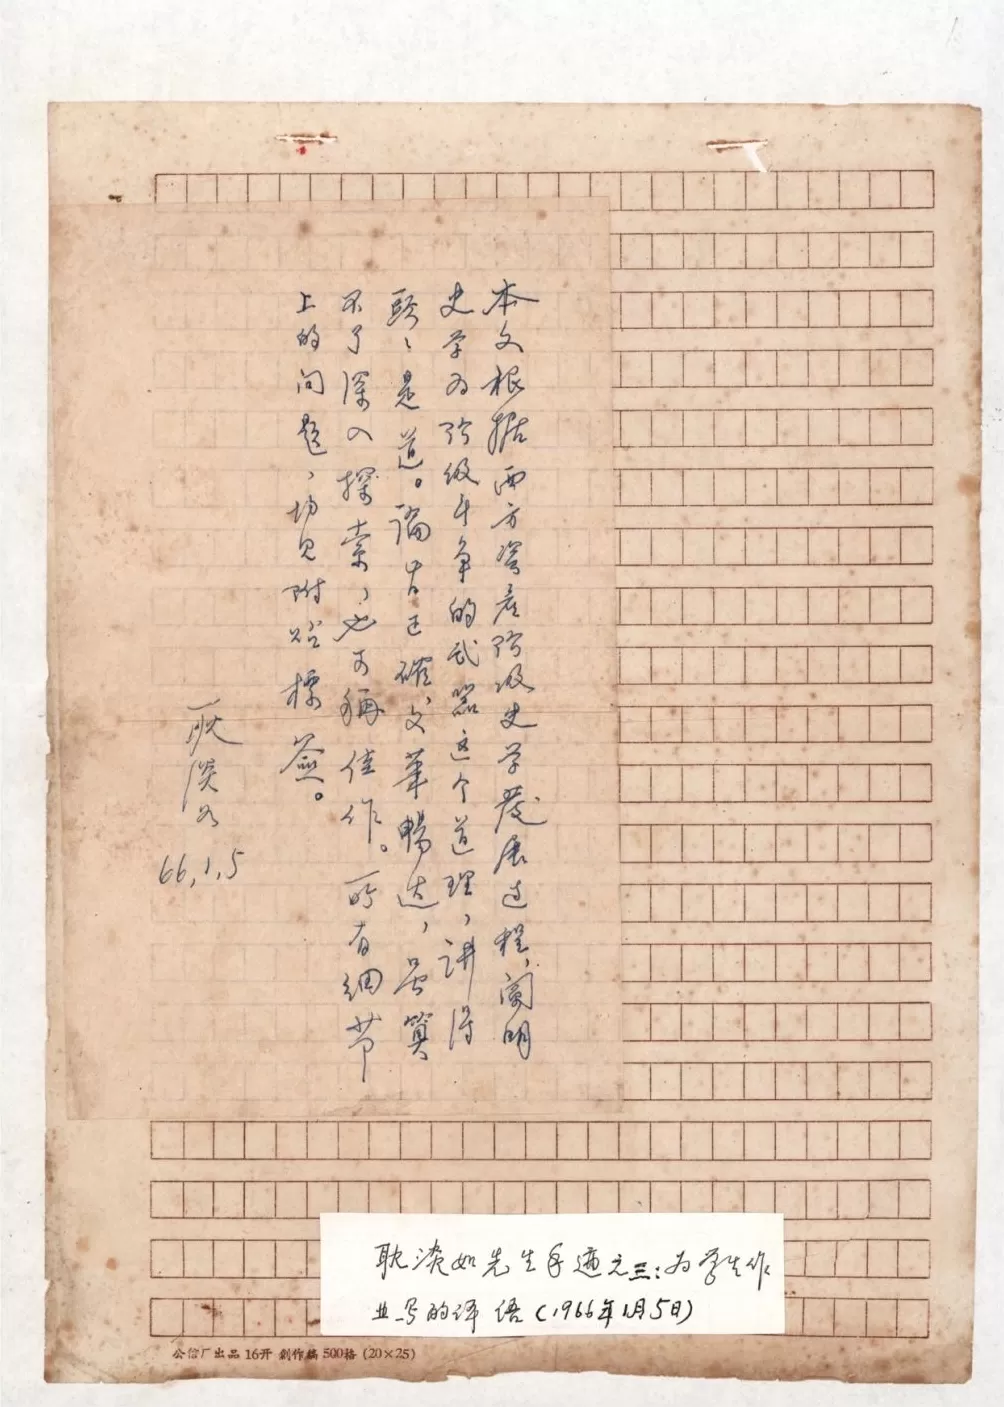 本文根据西方资产阶级史学发展过程，阐明
史学为阶级斗争的武器这个道理，讲得
头头是道。谝者正确，文笔畅达，虽算
不了深入探索，也可称佳作。所有细节
上的问题，均见附贴标签。
耿淡如
66,1,5
耿淡如先生手迹之三：为学生作
业写的评语（1966年1月5日）
公信厂出品 16开 創作稿 500格 (20×25)